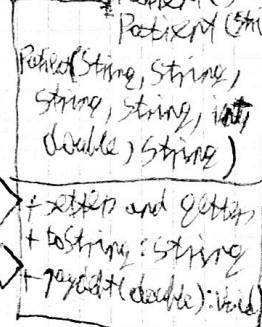 Patient (Stri
Patient(String, String,
String, String, int,
double, String)
+ setters and getters
+ toString : String
+ payDebt(double): void